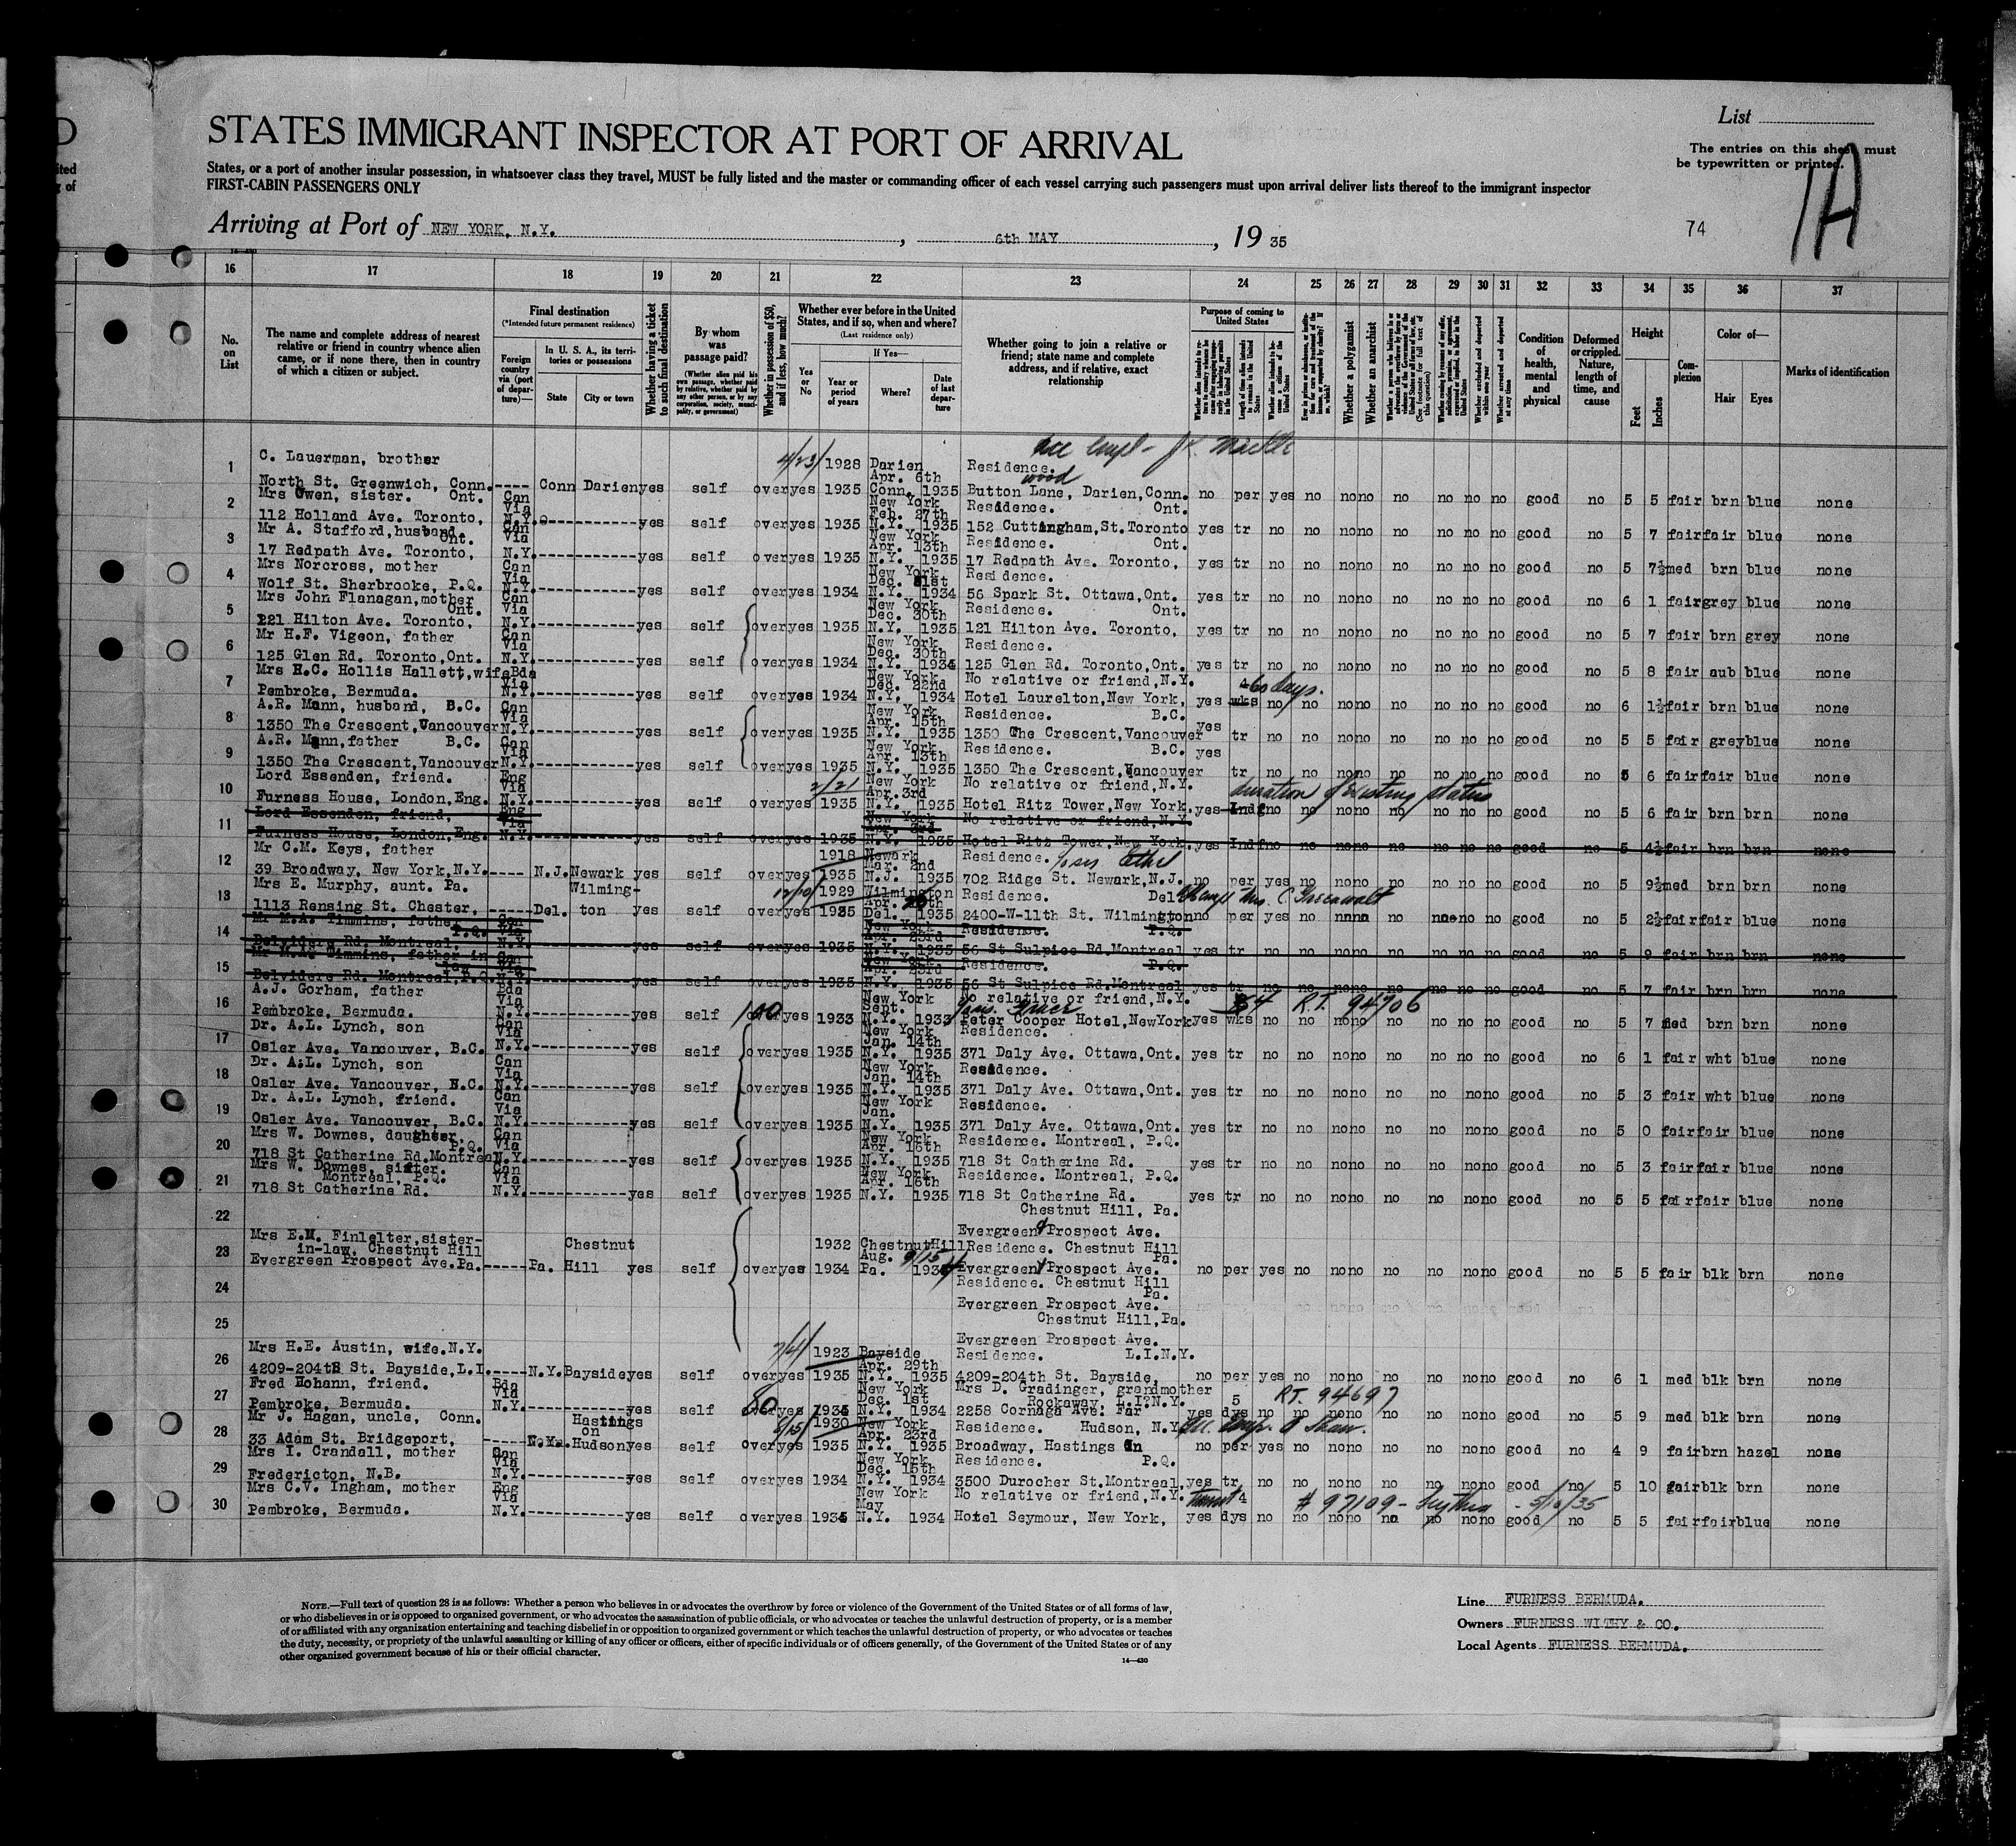 STATES IMMIGRANT INSPECTOR AT PORT OF ARRIVAL
List
The entries on this sheet must
be typewritten or printed.
1A
States, or a port of another insular possession, in whatsoever class they travel, MUST be fully listed and the master or commanding officer of each vessel carrying such passengers must upon arrival deliver lists thereof to the immigrant inspector
FIRST-CABIN PASSENGERS ONLY
Arriving at Port of NEW YORK, N.Y. , 6th MAY , 19 35
74
16 17 18 19 20 21 22 23 24 25 26 27 28 29 30 31 32 33 34 35 36 37
No. on List
The name and complete address of nearest relative or friend in country whence alien came, or if none there, then in country of which a citizen or subject.
Final destination
(*Intended future permanent residence)
Foreign country via (port of departure)—
In U. S. A., its territories or possessions
State
City or town
Whether having a ticket to such final destination
By whom was passage paid?
(Whether alien paid his own passage, whether paid by relative, whether paid by any other person, or by any corporation, society, municipality, or government)
Whether in possession of $50, and if less, how much?
Whether ever before in the United States, and if so, when and where?
(Last residence only)
Yes or No
If Yes—
Year or period of years
Where?
Date of last departure
Whether going to join a relative or friend; state name and complete address, and if relative, exact relationship
Purpose of coming to United States
Whether a polygamist
Whether an anarchist
Condition of health, mental and physical
Deformed or crippled. Nature, length of time, and cause
Height
Feet
Inches
Complexion
Color of—
Hair
Eyes
Marks of identification
1 C. Lauerman, brother 4/23/ 1928 Darien Apr. 6th Residence. wood
North St. Greenwich, Conn. ---- Conn Darien yes self over yes 1935 Conn. 1935 Button Lane, Darien, Conn. no per yes no no no no no no no good no 5 5 fair brn blue none
2 Mrs Owen, sister. Ont. Can Via New York Feb. 27th Residence. Ont.
112 Holland Ave. Toronto, N.Y. yes self over yes 1935 N.Y. 1935 152 Cuttingham, St. Toronto yes tr no no no no no no no no good no 5 7 fair fair blue none
3 Mr A. Stafford, husband. Ont. Can Via New York Apr. 13th Residence. Ont.
17 Redpath Ave. Toronto, N.Y. yes self over yes 1935 N.Y. 1935 17 Redpath Ave. Toronto, yes tr no no no no no no no no good no 5 7½ med brn blue none
4 Mrs Norcross, mother Can Via New York Dec. 21st Residence.
Wolf St. Sherbrooke, P.Q. N.Y. yes self over yes 1934 N.Y. 1934 56 Spark St. Ottawa, Ont. yes tr no no no no no no no no good no 6 1 fair grey blue none
5 Mrs John Flanagan, mother Ont. Can Via New York Dec. 30th Residence. Ont.
221 Hilton Ave. Toronto, N.Y. yes self over yes 1935 N.Y. 1935 121 Hilton Ave. Toronto, yes tr no no no no no no no no good no 5 7 fair brn grey none
6 Mr H.F. Vigeon, father Can Via New York Dec. 30th Residence.
125 Glen Rd. Toronto, Ont. N.Y. yes self over yes 1934 N.Y. 1934 125 Glen Rd. Toronto, Ont. yes tr no no no no no no no no good no 5 8 fair aub blue none
7 Mrs H.C. Hollis Hallett, wife Bda Via New York Dec. 22nd No relative or friend, N.Y. 60 days.
Pembroke, Bermuda. N.Y. yes self over yes 1934 N.Y. 1934 Hotel Laurelton, New York, yes wks no no no no no no no no good no 6 1½ fair brn blue none
8 A.R. Mann, husband, B.C. Can Via New York Apr. 15th Residence. B.C.
1350 The Crescent, Vancouver N.Y. yes self over yes 1935 N.Y. 1935 1350 The Crescent, Vancouver yes tr no no no no no no no no good no 5 5 fair grey blue none
9 A.R. Mann, father B.C. Can Via New York Apr. 13th Residence. B.C.
1350 The Crescent, Vancouver N.Y. yes self over yes 1935 N.Y. 1935 1350 The Crescent, Vancouver yes tr no no no no no no no no good no 5 6 fair fair blue none
10 Lord Essenden, friend. Eng Via 2/21 New York Apr. 3rd No relative or friend, N.Y. duration of existing status
Furness House, London, Eng. N.Y. yes self over yes 1935 N.Y. 1935 Hotel Ritz Tower, New York. yes Indf no no no no no no no no good no 5 6 fair brn brn none
11 Lord Essenden, friend, Eng Via New York Apr. 3rd No relative or friend, N.Y.
Furness House, London, Eng. N.Y. yes self over yes 1935 N.Y. 1935 Hotel Ritz Tower, New York. yes Indf no no no no no no no no good no 5 4½ fair brn brn none
12 Mr C.M. Keys, father 1918 Newark Mar. 2nd Residence. Ethel
39 Broadway, New York, N.Y. ---- N.J. Newark yes self over yes 1935 N.J. 1935 702 Ridge St. Newark, N.J. no per yes no no no no no no no good no 5 9½ med brn brn none
13 Mrs E. Murphy, aunt. Pa. Wilming- 12/10/ 1929 Wilmington Residence. Del
1113 Rensing St. Chester, ----- Del. ton yes self over yes 1935 Del. 1935 2400-W-11th St. Wilmington no per yes no no no no no no no good no 5 2½ fair fair blue none
14 Mr M.A. Timmins, father P.Q. Can Via New York Apr. 23rd Residence. P.Q.
Belvidere Rd. Montreal, N.Y. yes self over yes 1935 N.Y. 1935 56 St Sulpice Rd. Montreal yes tr no no no no no no no no good no 5 9 fair brn brn none
15 Mr M.A. Timmins, father in law Can Via New York Apr. 23rd Residence. P.Q.
Belvidere Rd. Montreal, P.Q. N.Y. yes self over yes 1935 N.Y. 1935 56 St Sulpice Rd. Montreal yes tr no no no no no no no no good no 5 7 fair brn brn none
16 A.J. Gorham, father Bda Via New York Sept. No relative or friend, N.Y. R.T. 94706
Pembroke, Bermuda. N.Y. yes self 100 over yes 1933 N.Y. 1933 Peter Cooper Hotel, New York yes wks no no no no no no no no good no 5 7 med brn brn none
17 Dr. A.L. Lynch, son Can Via New York Jan. 14th Residence.
Osler Ave. Vancouver, B.C. N.Y. yes self over yes 1935 N.Y. 1935 371 Daly Ave. Ottawa, Ont. yes tr no no no no no no no no good no 6 1 fair wht blue none
18 Dr. A.L. Lynch, son Can Via New York Jan. 14th Residence.
Osler Ave. Vancouver, B.C. N.Y. yes self over yes 1935 N.Y. 1935 371 Daly Ave. Ottawa, Ont. yes tr no no no no no no no no good no 5 3 fair wht blue none
19 Dr. A.L. Lynch, friend. Can Via New York Jan. Residence.
Osler Ave. Vancouver, B.C. N.Y. yes self over yes 1935 N.Y. 1935 371 Daly Ave. Ottawa, Ont. yes tr no no no no no no no no good no 5 0 fair fair blue none
20 Mrs W. Downes, daughter, P.Q. Can Via New York Apr. 16th Residence. Montreal, P.Q.
718 St Catherine Rd. Montreal N.Y. yes self over yes 1935 N.Y. 1935 718 St Catherine Rd. yes tr no no no no no no no no good no 5 3 fair fair blue none
21 Mrs W. Downes, sister. Montreal, P.Q. Can Via New York Apr. 16th Residence. Montreal, P.Q.
718 St Catherine Rd. N.Y. yes self over yes 1935 N.Y. 1935 718 St Catherine Rd. yes tr no no no no no no no no good no 5 5 fair fair blue none
22 Chestnut Hill, Pa.
Evergreen & Prospect Ave.
23 Mrs E.M. Finlelter, sister-in-law, Chestnut Hill Chestnut 1932 Chestnut Hill Aug. 9/15 Residence. Chestnut Hill Pa.
Evergreen Prospect Ave. Pa. ----- Pa. Hill yes self over yes 1934 Pa. 1934 Evergreen & Prospect Ave. no per yes no no no no no no no good no 5 5 fair blk brn none
24 Residence. Chestnut Hill Pa.
Evergreen Prospect Ave.
25 Chestnut Hill, Pa.
Evergreen Prospect Ave.
26 Mrs H.E. Austin, wife. N.Y. 1923 Bayside Apr. 29th Residence. L.I.N.Y.
4209-204th St. Bayside, L.I. ---- N.Y. Bayside yes self over yes 1935 N.Y. 1935 4209-204th St. Bayside, no per yes no no no no no no no good no 6 1 med blk brn none
27 Fred Hohann, friend. Bda Via New York Dec. 1st Mrs D. Gradinger, grandmother Rockaway, L.I. N.Y. 5 R.T. 94697
Pembroke, Bermuda. N.Y. yes self 80 over yes 1934 N.Y. 1934 2258 Cornaga Ave. Far yes dys no no no no no no no no good no 5 9 med blk brn none
28 Mr J. Hagan, uncle, Conn. Hastings on 1930 New York Apr. 23rd Residence. Hudson, N.Y.
33 Adam St. Bridgeport, ----- N.Y. Hudson yes self over yes 1935 N.Y. 1935 Broadway, Hastings On no per yes no no no no no no no good no 4 9 fair brn hazel none
29 Mrs I. Crandall, mother Can Via New York Dec. 15th Residence. P.Q.
Fredericton, N.B. N.Y. yes self over yes 1934 N.Y. 1934 3500 Durocher St. Montreal, yes tr no no no no no no no no good no 5 10 fair blk brn none
30 Mrs C.V. Ingham, mother Eng Via New York May No relative or friend, N.Y. transit 4 # 97109 - Scythia - 5/10/35
Pembroke, Bermuda. N.Y. yes self over yes 1934 N.Y. 1934 Hotel Seymour, New York, yes dys no no no no no no no no good no 5 5 fair fair blue none
NOTE.—Full text of question 28 is as follows: Whether a person who believes in or advocates the overthrow by force or violence of the Government of the United States or of all forms of law,
or who disbelieves in or is opposed to organized government, or who advocates the assassination of public officials, or who advocates or teaches the unlawful destruction of property, or is a member
of or affiliated with any organization entertaining and teaching disbelief in or opposition to organized government or which teaches the unlawful destruction of property, or who advocates or teaches
the duty, necessity, or propriety of the unlawful assaulting or killing of any officer or officers, either of specific individuals or of officers generally, of the Government of the United States or of any
other organized government because of his or their official character.
14—430
Line FURNESS BERMUDA.
Owners FURNESS WITHY & CO.
Local Agents FURNESS BERMUDA.